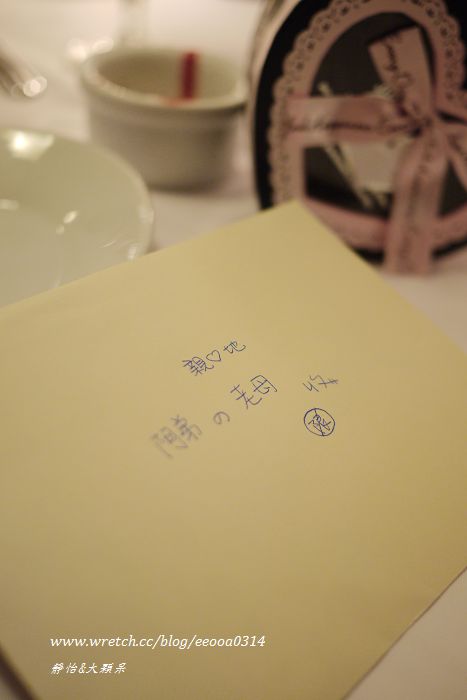 親♡地
阿弟の老母 收
張
www.wretch.cc/blog/eeooa0314
靜怡&大顆呆